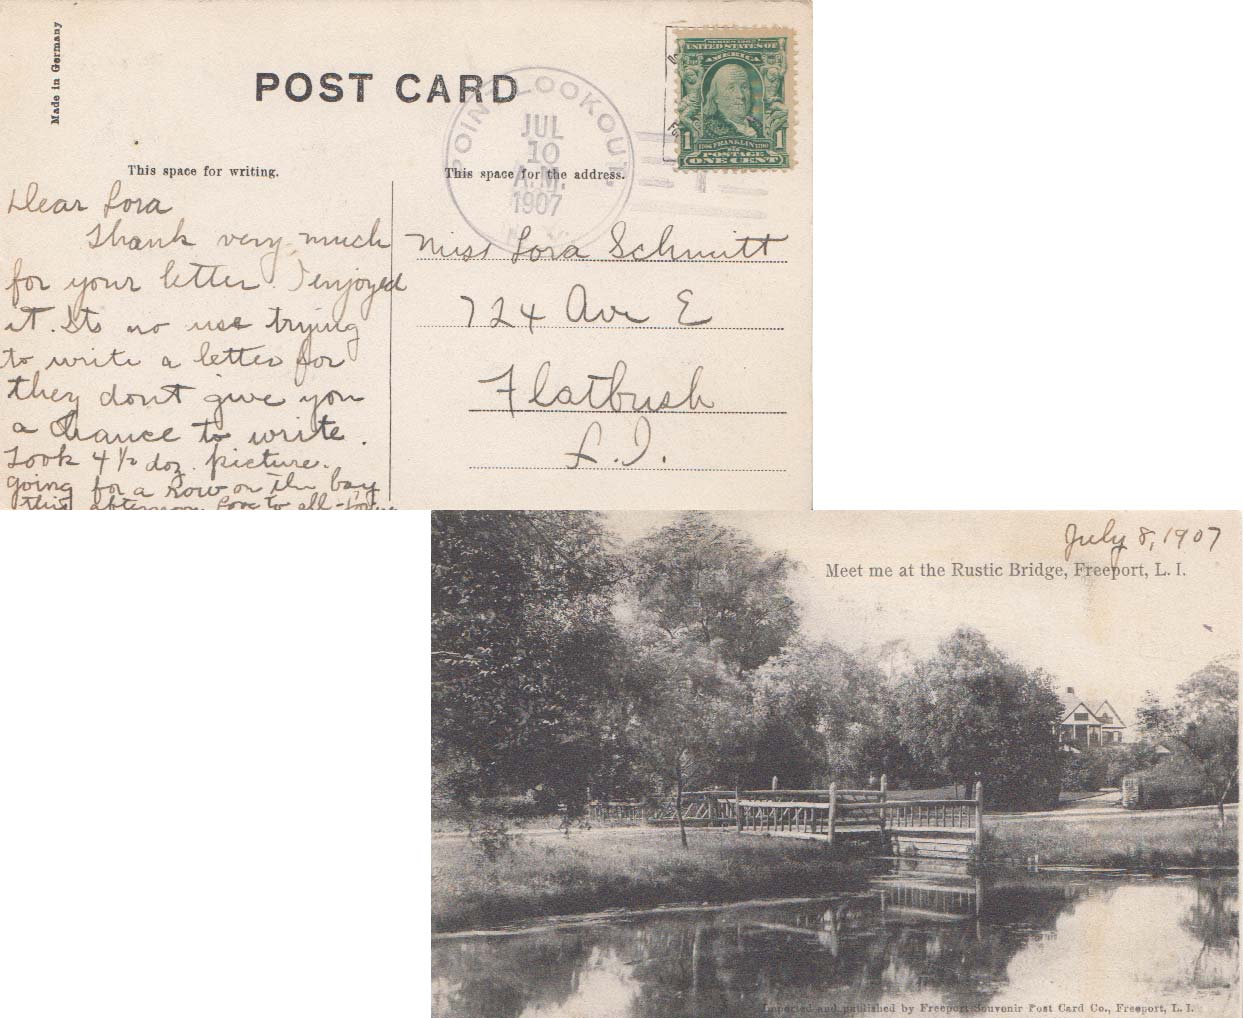 Made in Germany
POST CARD
POINT LOOKOUT
JUL
10
A.M.
1907
N.Y.
SERIES 1902
UNITED STATES OF
AMERICA
1 1
1706 FRANKLIN 1790
POSTAGE
ONE CENT
This space for writing.
This space for the address.
Dear Lora
Thank very much
for your letter. I enjoyed
it. Its no use trying
to write a letter for
they dont give you
a chance to write.
Took 4½ doz. picture.
going for a row on the bay
this afternoon Love to all
Miss Lora Schmitt
724 Ave E
Flatbush
L.I.
July 8, 1907
Meet me at the Rustic Bridge, Freeport, L. I.
Imported and published by Freeport Souvenir Post Card Co., Freeport, L. I.